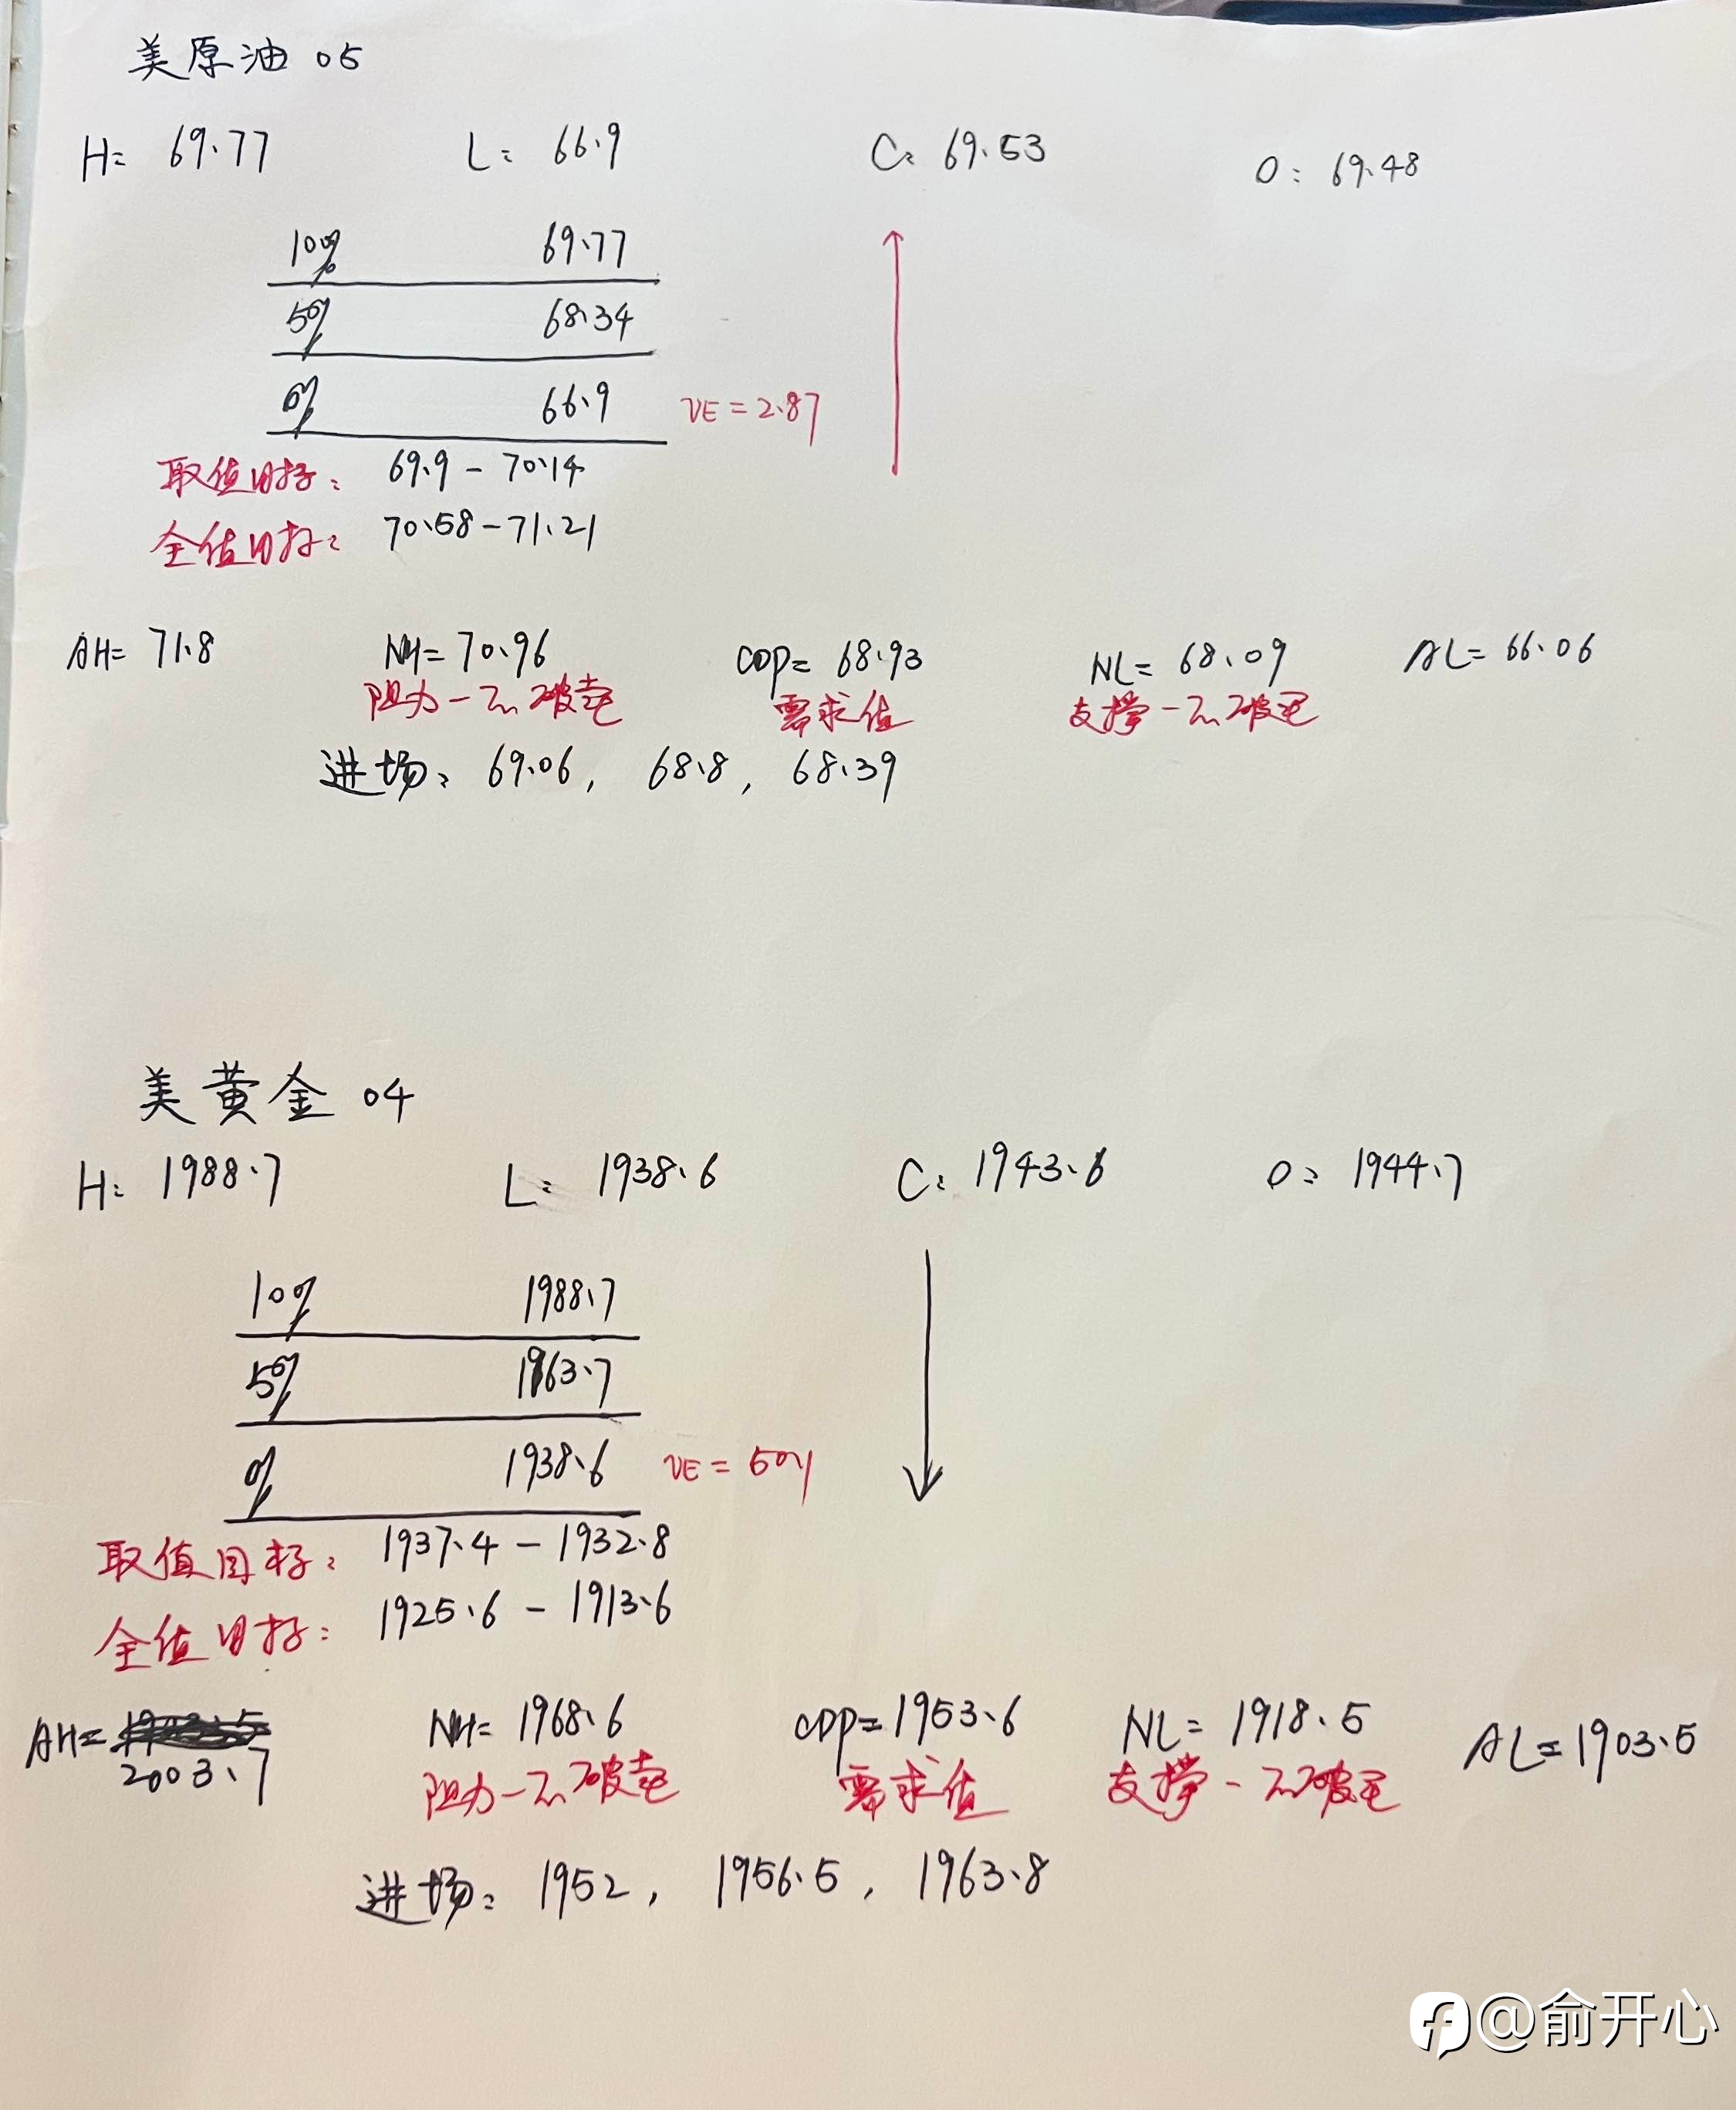 美原油 05
H: 69.77 L: 66.9 C: 69.53 O: 69.48
100% 69.77
50% 68.34
0% 66.9 VE = 2.87
取值目标: 69.9 - 70.14
全值目标: 70.58 - 71.21
AH= 71.8 NH= 70.96 CDP= 68.93 NL= 68.09 AL= 66.06
阻力一不破 需求值 支撑一不破
进场: 69.06, 68.8, 68.39
美黄金 04
H: 1988.7 L: 1938.6 C: 1943.6 O: 1944.7
100% 1988.7
50% 1963.7
0% 1938.6 VE = 50.1
取值目标: 1937.4 - 1932.8
全值目标: 1925.6 - 1913.6
AH= 2003.7 NH= 1968.6 CDP= 1953.6 NL= 1918.5 AL= 1903.5
阻力一不破 需求值 支撑一不破
进场: 1952, 1956.5, 1963.8
@俞开心